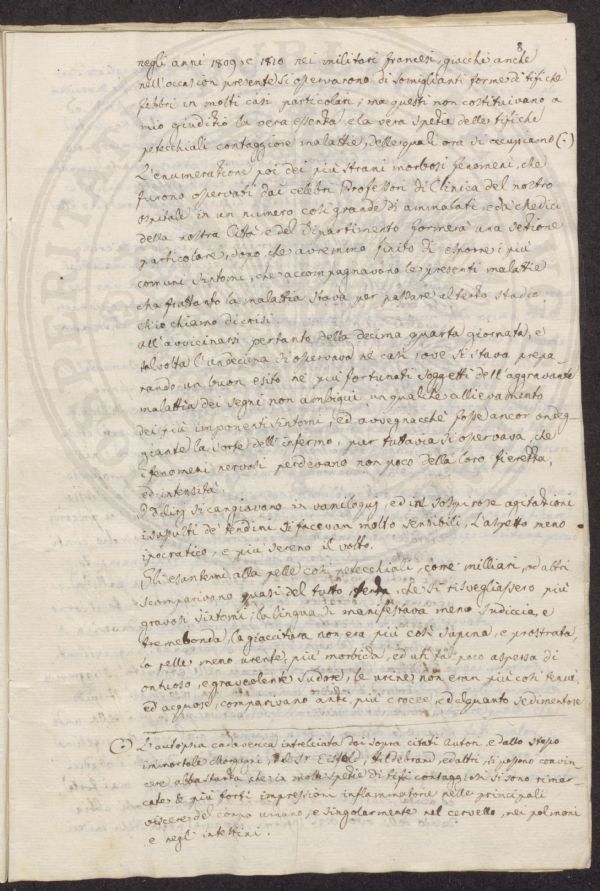 8
negli anni 1809, e 1810 nei militari francesi, giacchè anche
nell'occasion presente si osservarono di somiglianti forme di tifiche
febbri in molti casi particolari; ma questi non costituivano a
mio giuditio la vera essenza, e la vera spetie delle tifiche
petecchiali contaggiose malattie, delle quali ora vi occupiamo (.)
L'enumeratione poi dei più strani morbosi fenomeni, che
furono osservati dai celebri Professori di Clinica del nostro
ospitale in un numero così grande di ammalati, e da Medici
della nostra Città e del Dipartimento formerà una setione
particolare, dopo, che avremmo finito di esporre i più
comuni sintomi, che accompagnavano le presenti malattie
che frattanto la malattia stava per passare al terzo stadio
ch'io chiamo di crisi.
all'avvicinarsi pertanto della decima quarta giornata, e
talvolta l'undecima si osservava ne casi ove si stava prepa-
rando un buon esito ne' più fortunati soggetti dell'aggravante
malattia dei segni non ambigui, un qualche allievamento
dei più imponenti sintomi, ed avvegnacchè fosse ancor ondeg-
giante la sorte dell'infermo, pur tuttavia si osservava, che
i fenomeni nervosi perdevano non poco della loro fierezza,
ed intensità.
I deliri si cangiavano in vaniloquj, ed in sospirose agitazioni
i sussulti de' tendini si facevan molto sensibili, L'aspetto meno
ipocratico, e più sereno il volto.
Gli esantemi alla pelle così petecchiali, come milliari, ed altri
scomparivano quasi del tutto, senza, che si risvegliassero più
gravosi sintomi; la lingua si manifestava meno sudiccia, e
tremebonda, la giaccitura non era più così supina, e prostrata,
la pelle meno urente, più morbida, ed un tal poco aspersa di
ontuoso, e graveolente sudore, le urine non eran più così tenui,
ed acquose, comparivano anzi più crocee, ed alquanto sedimentose
(.) L'autopsia cadaverica intrecciata dai sopra citati Autori, e dallo stesso
immortale Morgagni, dal Sr. Hildebrand, ed altri, ci possono convin-
cere abbastanza, che in molte spezie di tiffi contaggiosi si sono rimar-
cate le più forti impressioni inflammatorie nelle principali
viscere del corpo umano, e singolarmente nel cervello, nei polmoni
e negl'intestini.